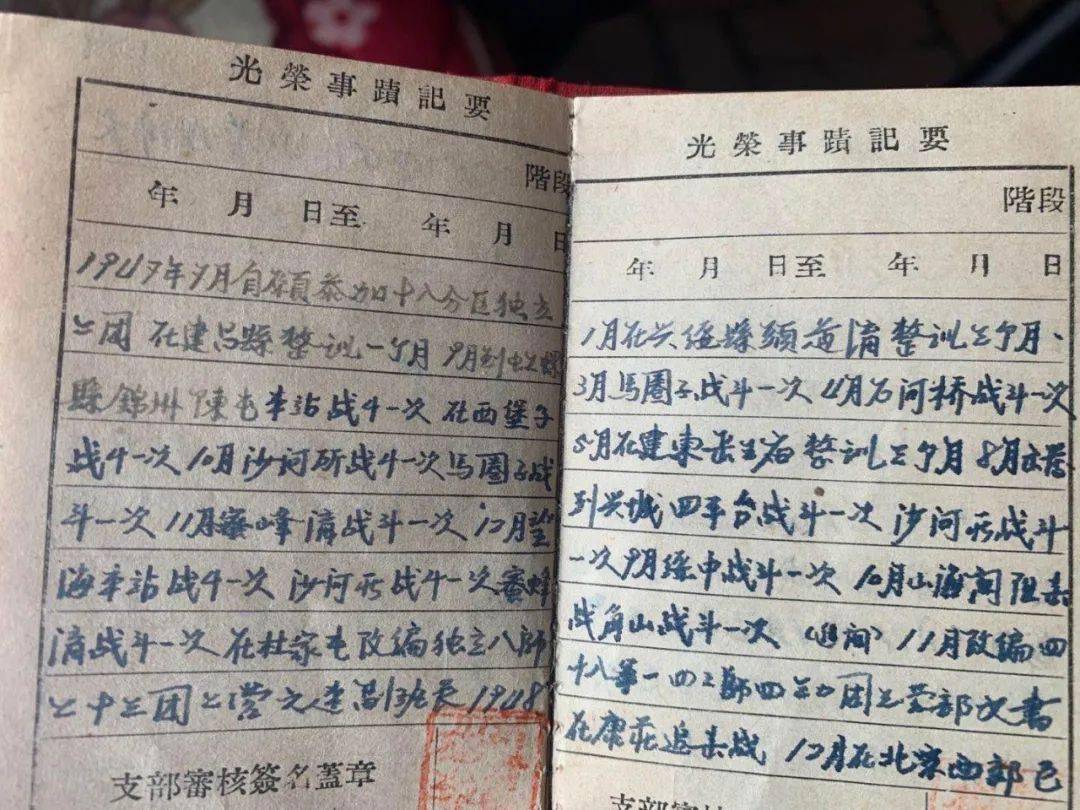 光榮事蹟記要
階段
年 月 日至 年 月 日
1947年7月自願參加十八分区独立
二团 在建昌縣整训一个月 9月到
縣錦州陳屯車站战斗一次 在西堡子
战斗一次 10月沙河所战斗一次馬圈子战
斗一次 11月蜜峰溝战斗一次 12月望
海車站战斗一次 沙河所战斗一次蜜蜂
溝战斗一次 在杜家屯改編独立八師
二十三团二营六连副班長 1948
支部審核簽名蓋章
光榮事蹟記要
階段
年 月 日至 年 月 日
1月在兴绥縣頭道溝整训三个月、
3月馬圈子战斗一次 4月石河桥战斗一次
5月在建東 整训三个月 8月
到兴城四平台战斗一次 沙河所战斗
一次9月绥中战斗一次 10月山海関阻击
战角山战斗一次 11月改编四
十八軍一四二師四 团三营部文書
在康莊追击战 12月在北京西郊
支部審核